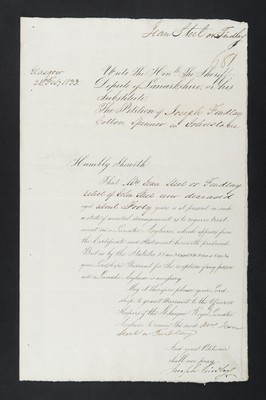 Jean Steel or Findlay
Glasgow
Unto The Honble. The Sheriff
Depute of Lanarkshire, or his
Substitute
The Petition of Joseph Findlay
Cotton Spinner in Johnstone
Humbly Sheweth
That Mrs Jean Steel or Findlay
relict of John Steel now deceased
aged about Forty years is at present in such
a state of mental derangement as to require treat-
ment in a Lunatic Asylum, which appears from
the Certificate and Statement herewith produced
But as by the Statutes
your Lordship's Warrant for the reception of any person
into a Lunatic Asylum is necessary
May it therefore please your Lord-
ship to grant Warrant to the
of the Glasgow Royal Lunatic
Asylum to receive the said Mrs Jean
Steel or Findlay
And your Petitioner
shall ever pray
Joseph Findlay